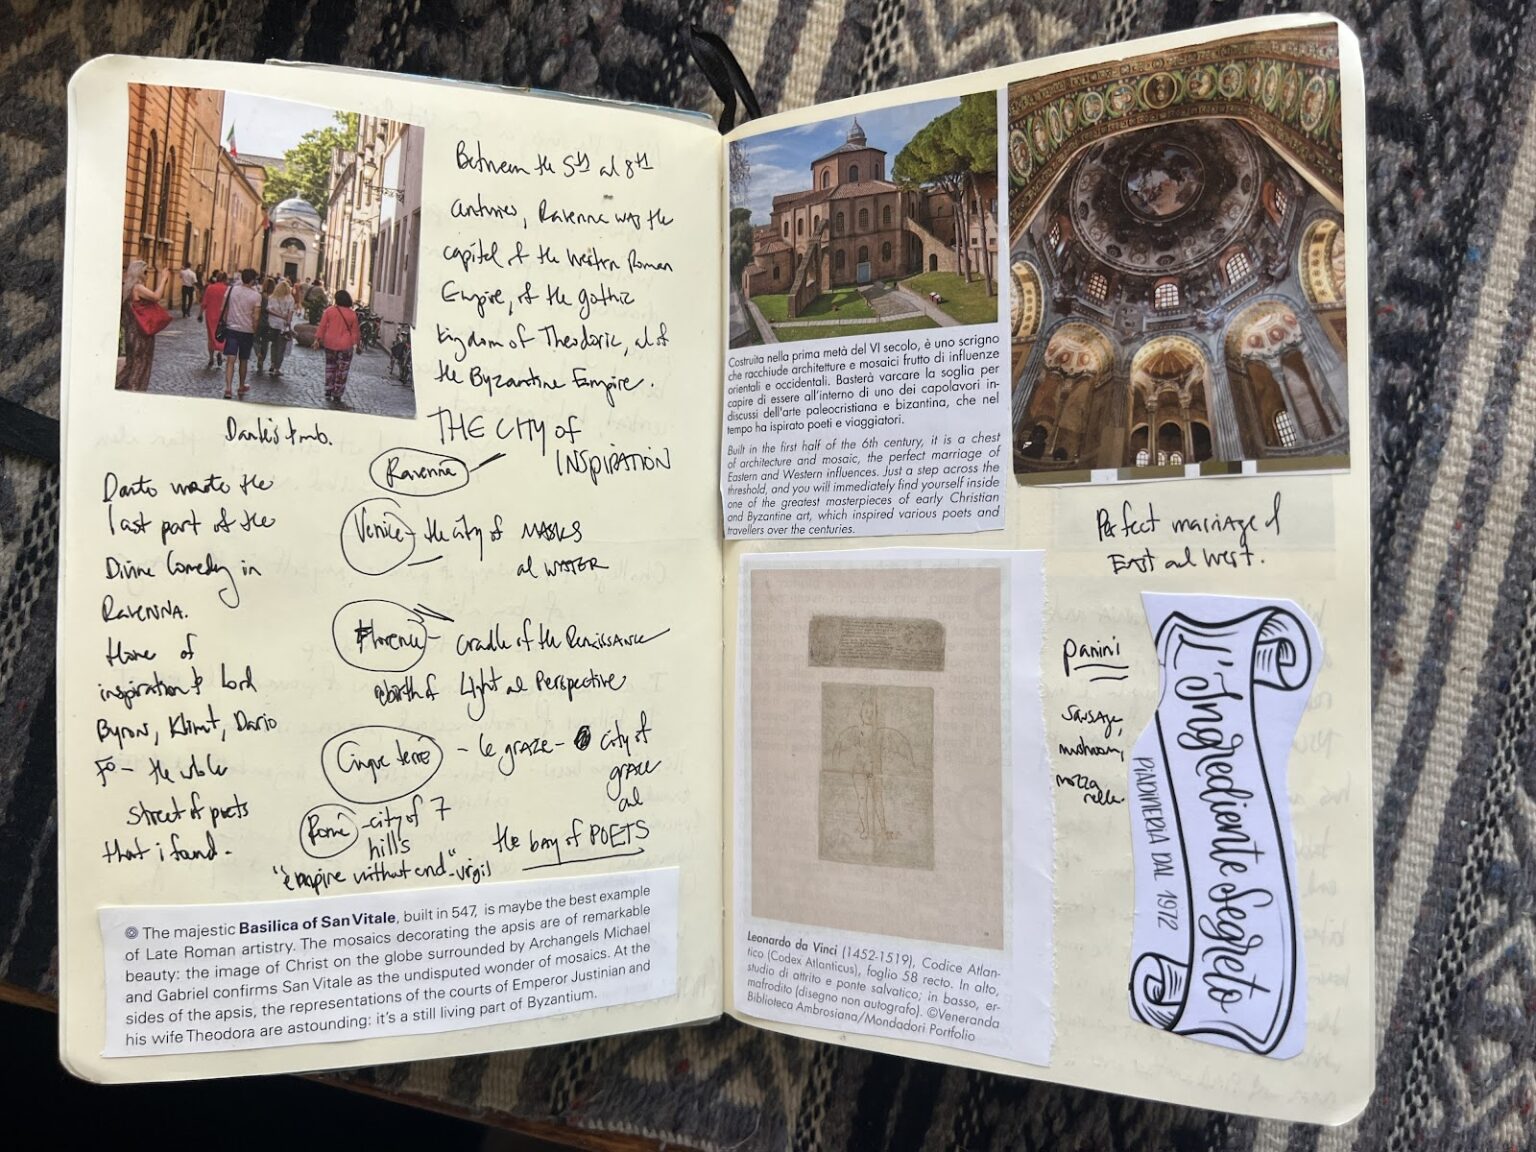 Between the 5th al 8th
centuries, Ravenna was the
capitol of the Western Roman
Empire, of the gothic
kingdom of Theodoric, al of
the Byzantine Empire.
Dante's tomb.
THE CITY of
INSPIRATION
Ravenna
Dante wrote the
last part of the
Divine Comedy in
RAVENNA.
of
inspiration Lord
Byron, Klimt, Dario
Fo - the whole
street of poets
that i found.
Venice - the city of MASKS
al WATER
Florence - cradle of the Renaissance
rebirth of Light al Perspective
Cinque terre - le graze - city of
graze
al
the bay of POETS
Rome - city of 7
hills
"empire without end" - virgil
The majestic Basilica of San Vitale, built in 547, is maybe the best example
of Late Roman artistry. The mosaics decorating the apsis are of remarkable
beauty: the image of Christ on the globe surrounded by Archangels Michael
and Gabriel confirms San Vitale as the undisputed wonder of mosaics. At the
sides of the apsis, the representations of the courts of Emperor Justinian and
his wife Theodora are astounding: it's a still living part of Byzantium.
Costruita nella prima metà del VI secolo, è uno scrigno
che racchiude architetture e mosaici frutto di influenze
orientali e occidentali. Basterà varcare la soglia per
capire di essere all'interno di uno dei capolavori in-
discussi dell'arte paleocristiana e bizantina, che nel
tempo ha ispirato poeti e viaggiatori.
Built in the first half of the 6th century, it is a chest
of architecture and mosaic, the perfect marriage of
Eastern and Western influences. Just a step across the
threshold, and you will immediately find yourself inside
one of the greatest masterpieces of early Christian
and Byzantine art, which inspired various poets and
travellers over the centuries.
Perfect marriage of
East and West.
Leonardo da Vinci (1452-1519), Codice Atlan-
tico (Codex Atlanticus), foglio 58 recto. In alto,
studio di attrito e ponte salvatico; in basso, er-
mafrodito (disegno non autografo). ©Veneranda
Biblioteca Ambrosiana/Mondadori Portfolio
panini
sausage,
mushroom,
mozza
rella
L'Ingrediente Segreto
PIADINERIA DAL 1972